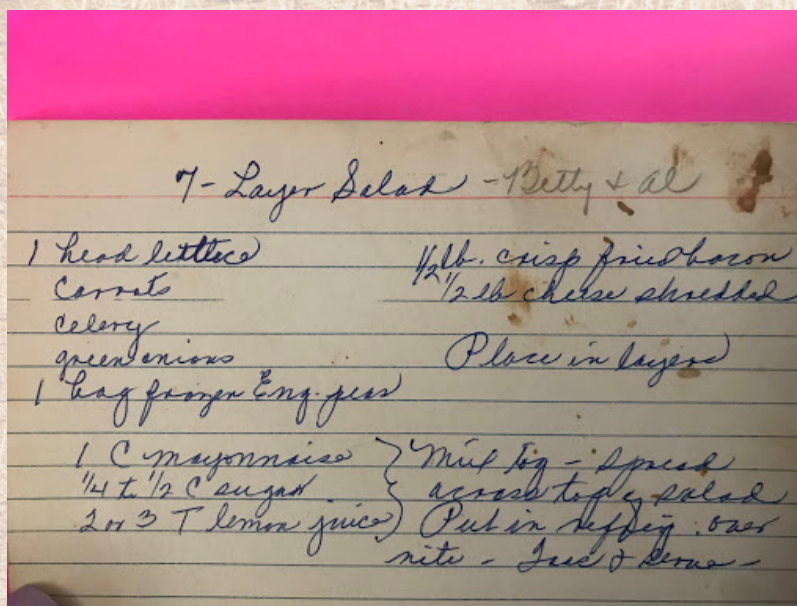 7 - Layer Salad - Betty & Al
1 head lettuce
carrots
celery
green onions
1 bag frozen Eng. peas
1/2 lb. crisp fried bacon
1/2 lb cheese shredded
Place in layers
1 C mayonnaise
1/4 to 1/2 C sugar
2 or 3 T lemon juice
Mix tog - spread
across top of salad
Put in refrig. over
nite - Toss & serve -